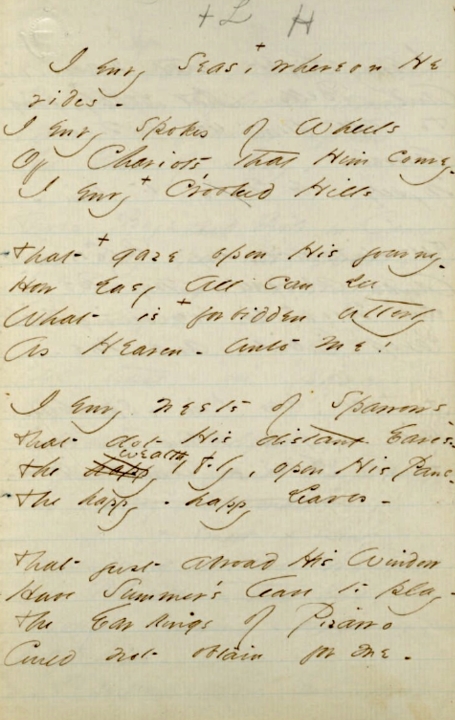 + L H
I envy Seas, + whereon He
rides -
I envy Spokes of Wheels
Of Chariots, that Him convey -
I envy + Crooked Hills
That + gaze upon His journey -
How Easy All can see
What is + forbidden utterly
As Heaven - unto me!
I envy nests of Sparrows -
That dot His distant Eaves -
wealthy
The happy Fly, upon His Pane -
The happy - happy Leaves -
That just abroad His Window
Have Summer's leave to play -
The Ear Rings of Pizarro
Could not obtain for me -